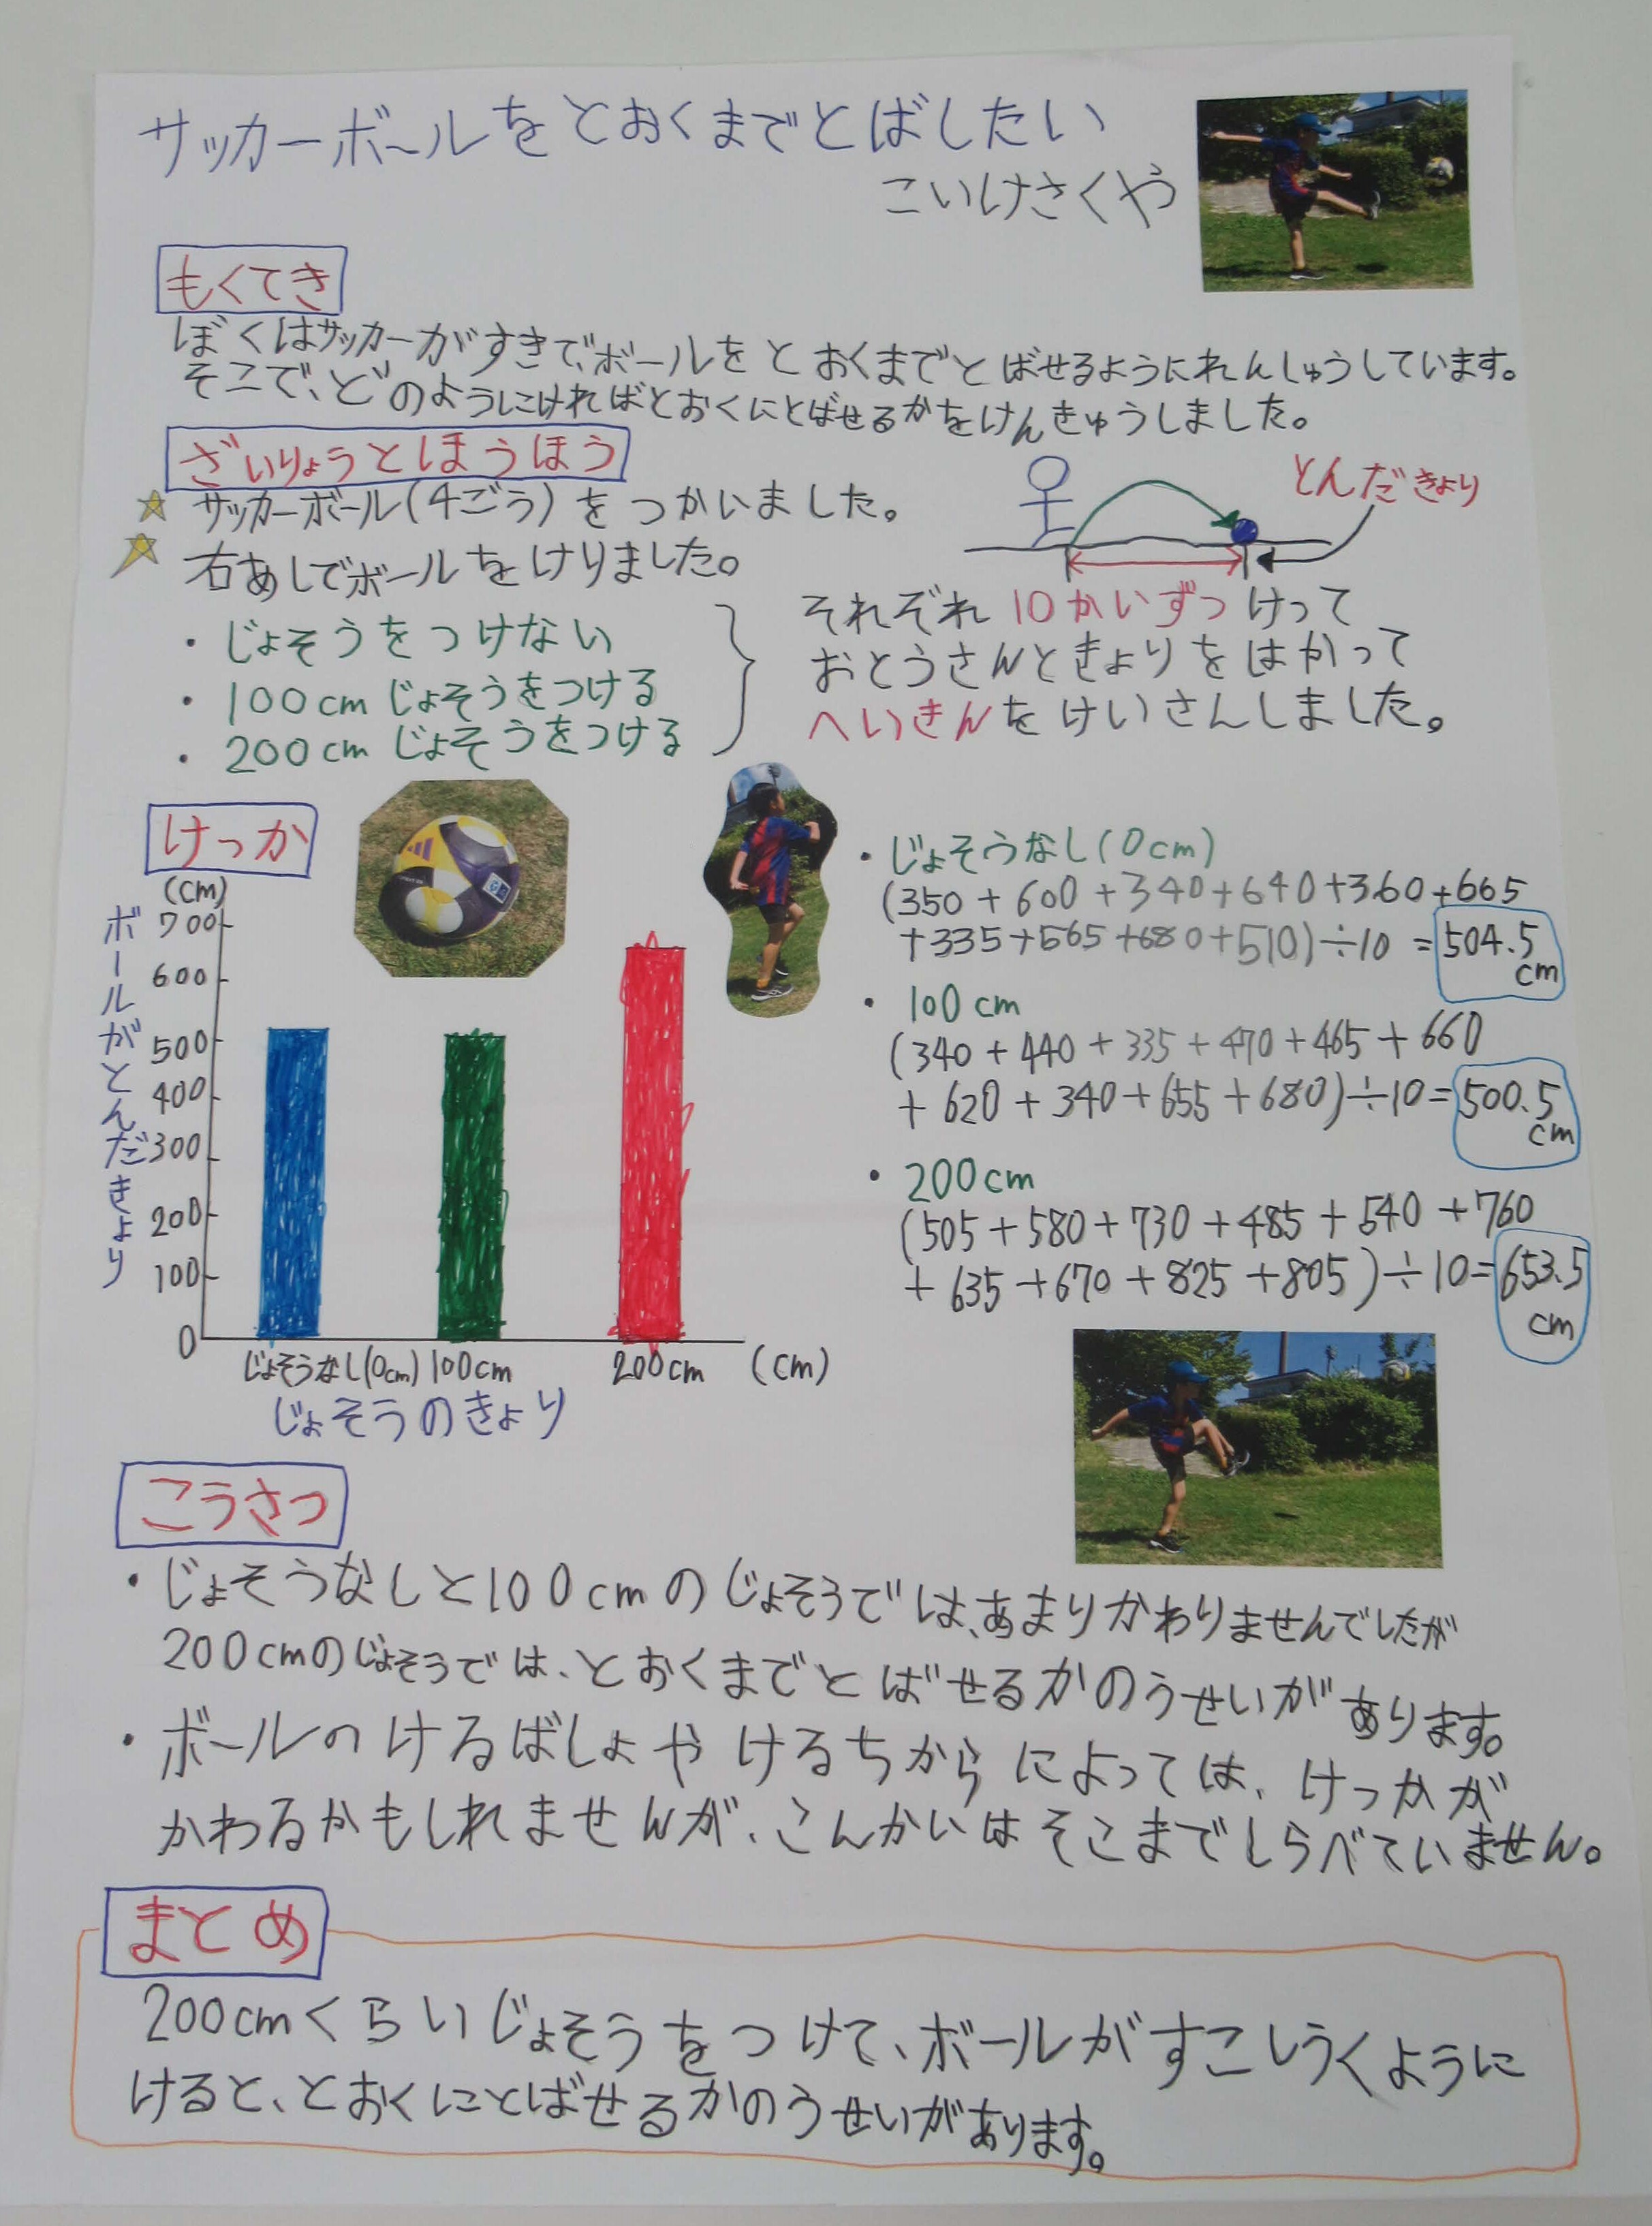 サッカーボールをとおくまでとばしたい
こいけさくや
もくてき
ぼくはサッカーがすきで、ボールをとおくまでとばせるようにれんしゅうしています。
そこで、どのようにければとおくにとばせるかをけんきゅうしました。
ざいりょうとほうほう
サッカーボール(4ごう)をつかいました。
右あしでボールをけりました。
・じょそうをつけない
・100cmじょそうをつける
・200cmじょそうをつける
とんだきょり
それぞれ10かいずつけって
おとうさんときょりをはかって
へいきんをけいさんしました。
けっか
(cm)
ボールがとんだきょり
700
600
500
400
300
200
100
0
じょそうなし(0cm) 100cm 200cm (cm)
じょそうのきょり
・じょそうなし(0cm)
(350+600+340+640+360+665
+335+565+680+510)÷10=504.5
cm
・100cm
(340+440+335+470+465+660
+620+340+655+680)÷10=500.5
cm
・200cm
(505+580+730+485+540+760
+635+670+825+805)÷10=653.5
cm
こうさつ
・じょそうなしと100cmのじょそうでは、あまりかわりませんでしたが
200cmのじょそうでは、とおくまでとばせるかのうせいがあります。
・ボールのけるばしょやけるちからによっては、けっかが
かわるかもしれませんが、こんかいはそこまでしらべていません。
まとめ
200cmくらいじょそうをつけて、ボールがすこしうくように
けると、とおくにとばせるかのうせいがあります。